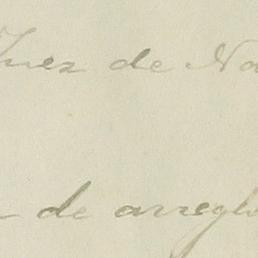 Juez de Na
de arreglo